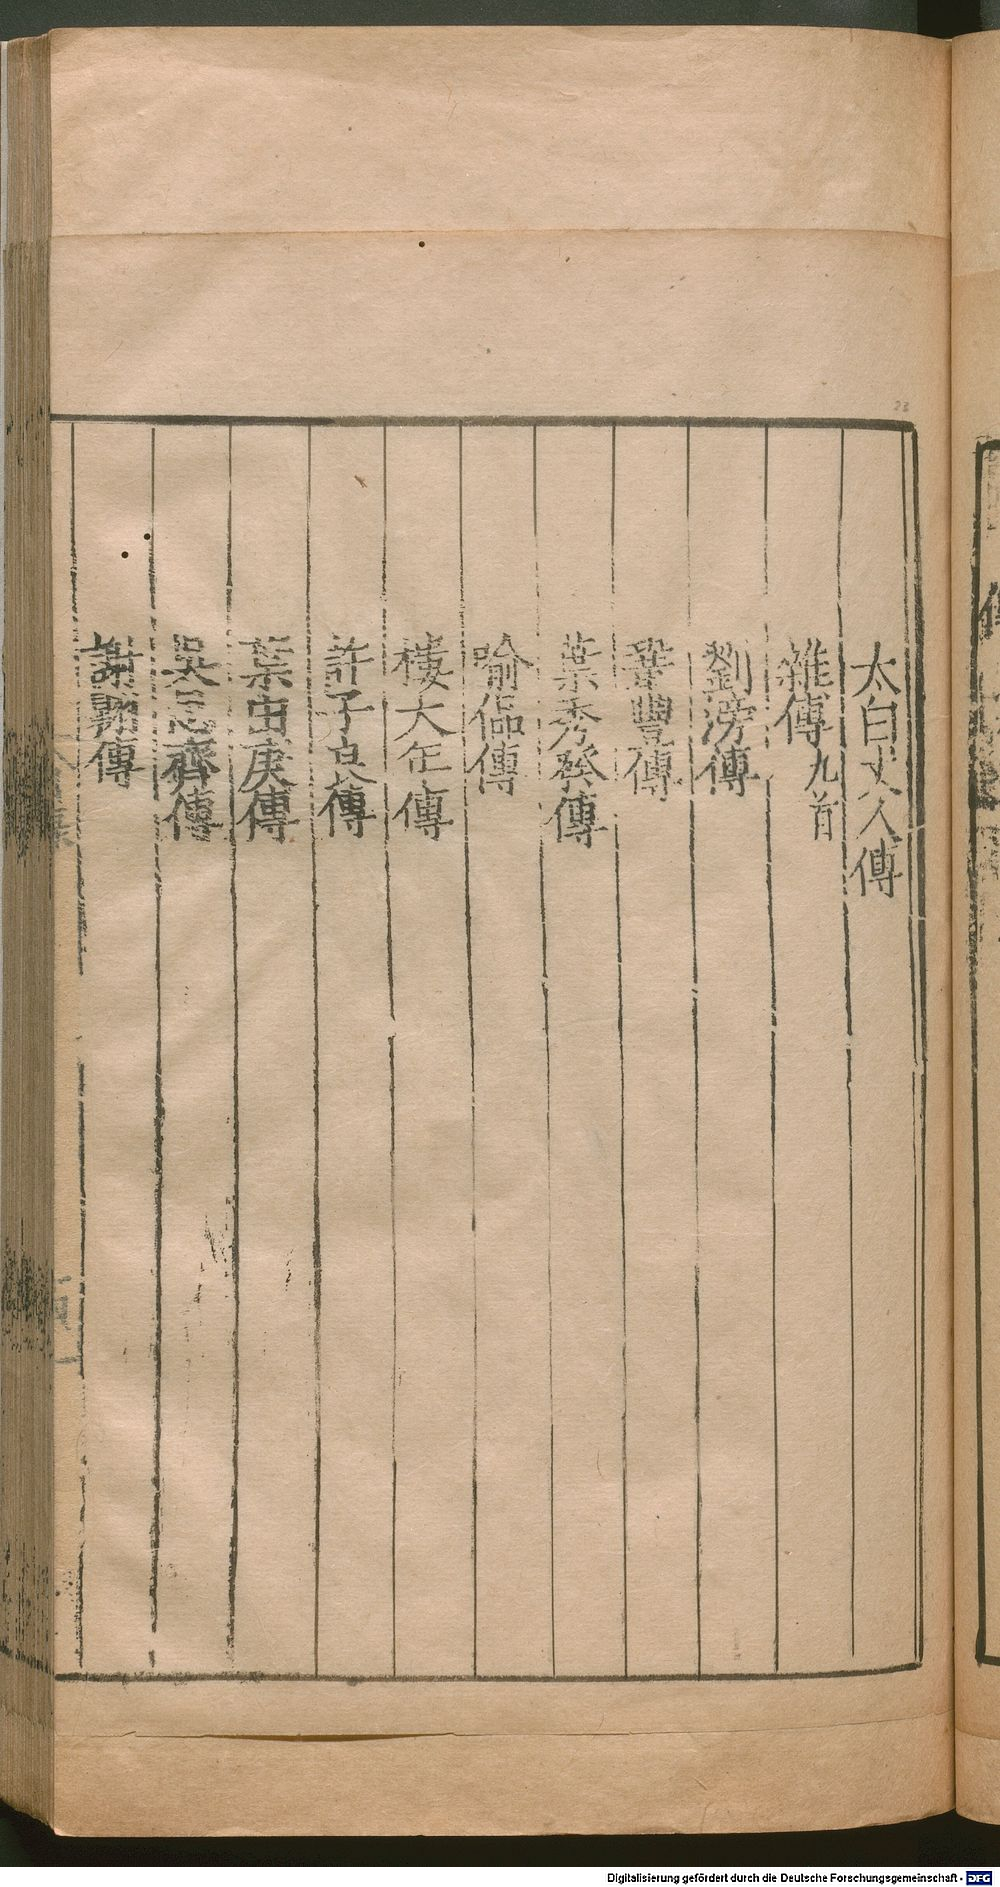 太白丈人傳
雜傳九首
劉滂傳
鞏豐傳
葉秀發傳
喻偘傳
樓大年傳
許子良傳
葉由庚傳
吳思齊傳
謝翱傳
23
Digitalisierung gefördert durch die Deutsche Forschungsgemeinschaft - DFG